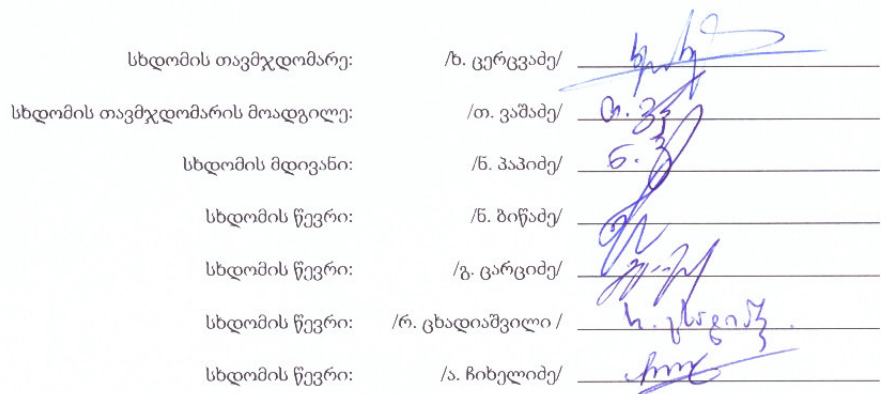 სხდომის თავმჯდომარე: /ხ. ცერცვაძე/
სხდომის თავმჯდომარის მოადგილე: /თ. ვაშაძე/ თ. ვ
სხდომის მდივანი: /ნ. პაპიძე/ ნ. პ
სხდომის წევრი: /ნ. ბიწაძე/
სხდომის წევრი: /გ. ცარციძე/
სხდომის წევრი: /რ. ცხადიაშვილი /
სხდომის წევრი: /ა. ჩიხელიძე/